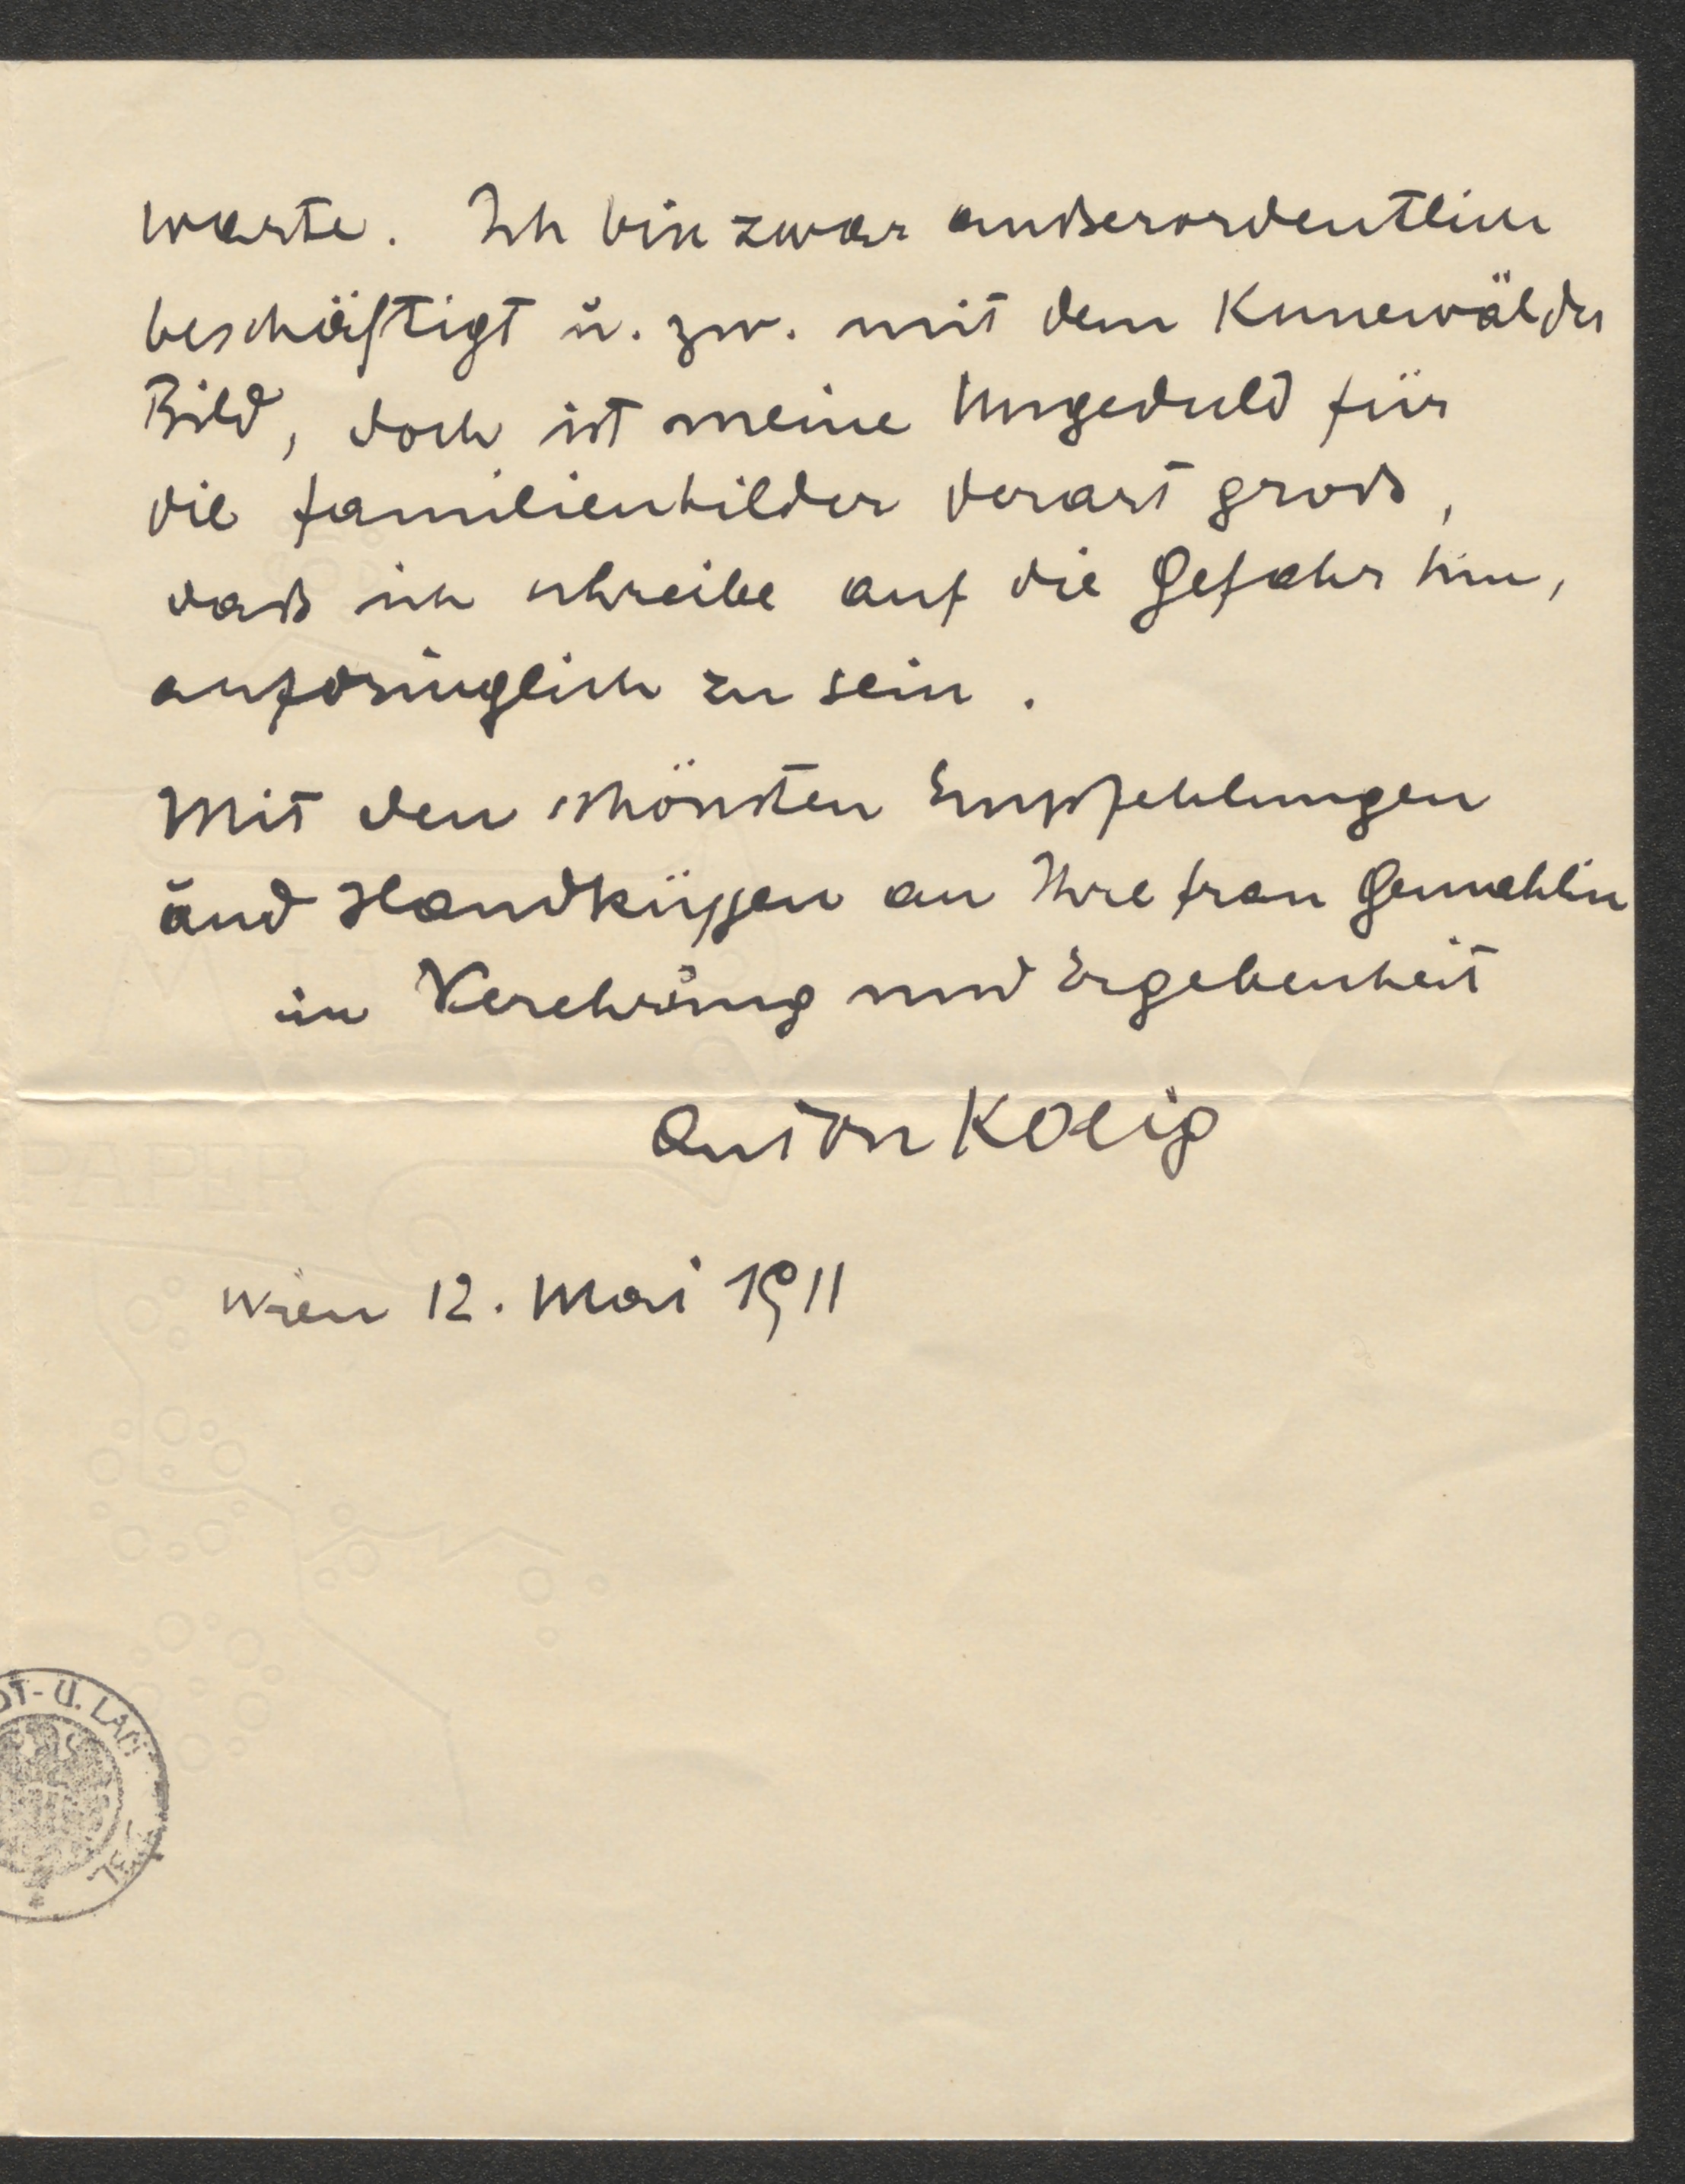 warte. Ich bin zwar außerordentlich
beschäftigt u. zw. mit dem Kunewälder
Bild, doch ist meine Ungeduld für
die Familienbilder derart groß,
daß ich schreibe auf die Gefahr hin,
aufdringlich zu sein.
Mit den schönsten Empfehlungen
und Handküssen an Ihre Frau Gemahlin
in Verehrung und Ergebenheit
Anton Kolig
Wien 12. Mai 1911
APER
DT- U. LAN